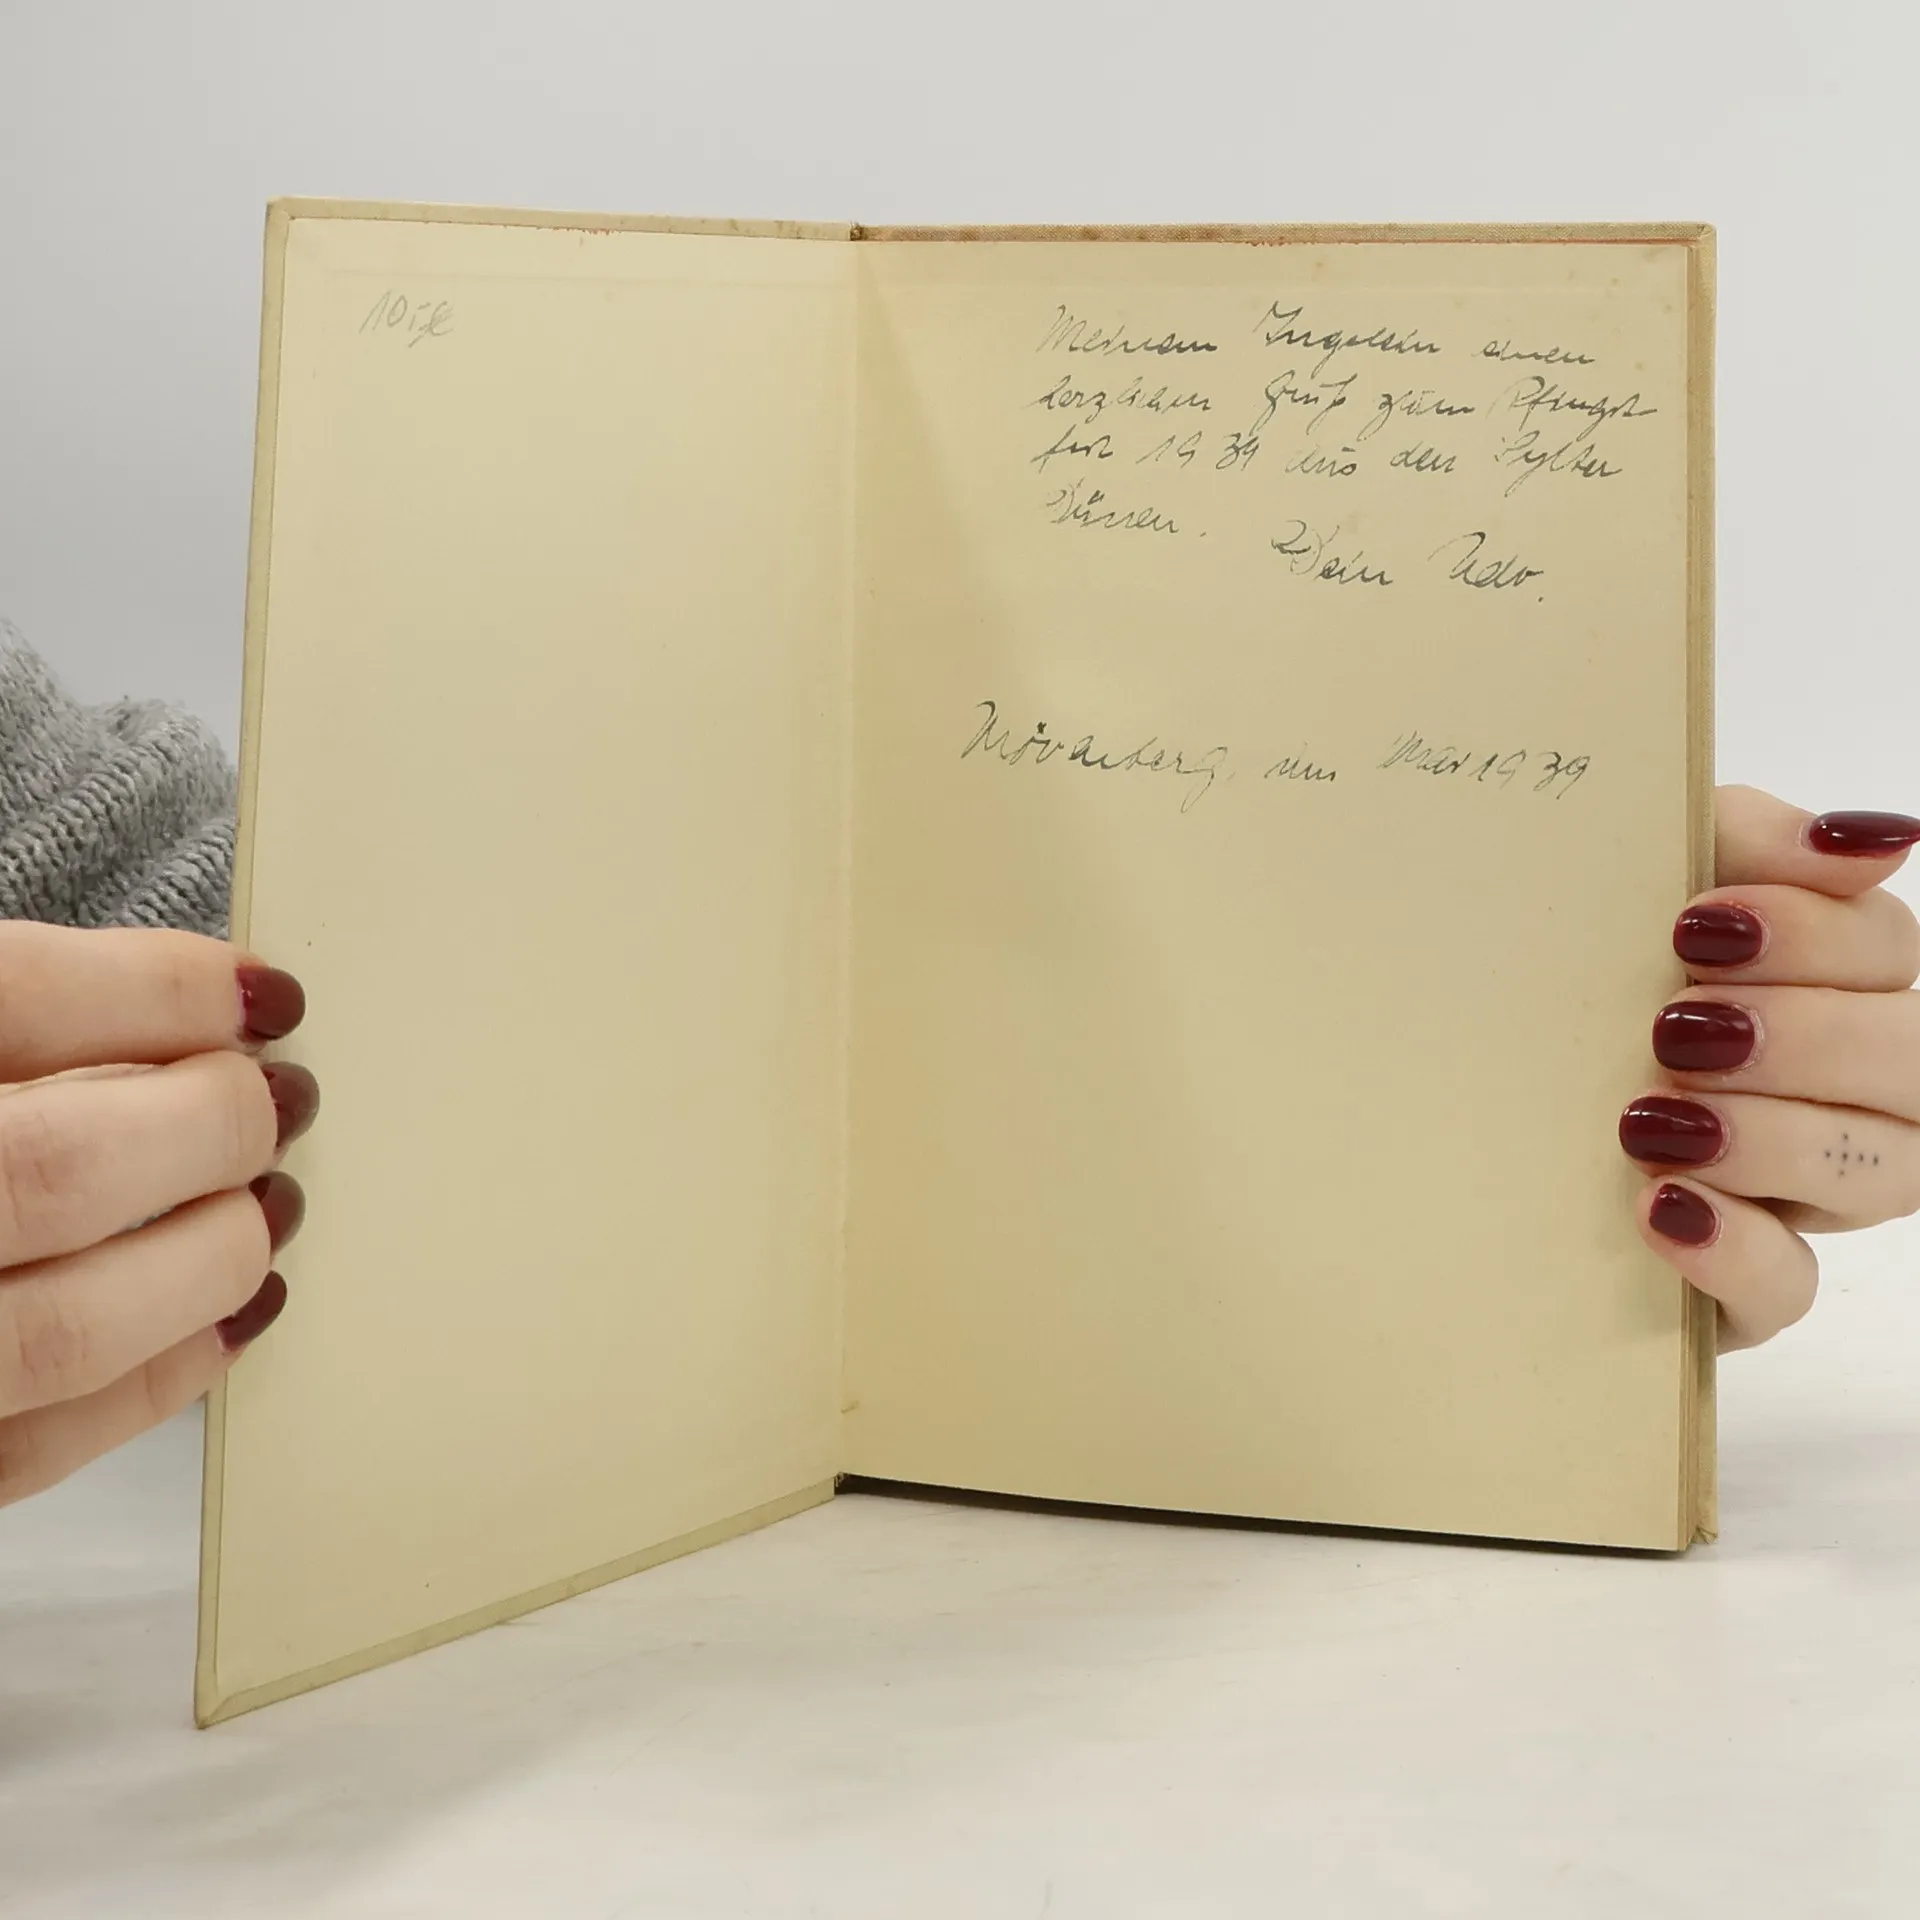 10,-
Meinem Ingelein einen
herzlichen Gruß zum Pfingst
fest 1939 aus den Sylter
Dünen.
Dein Udo.
Mövenberg, im Mai 1939